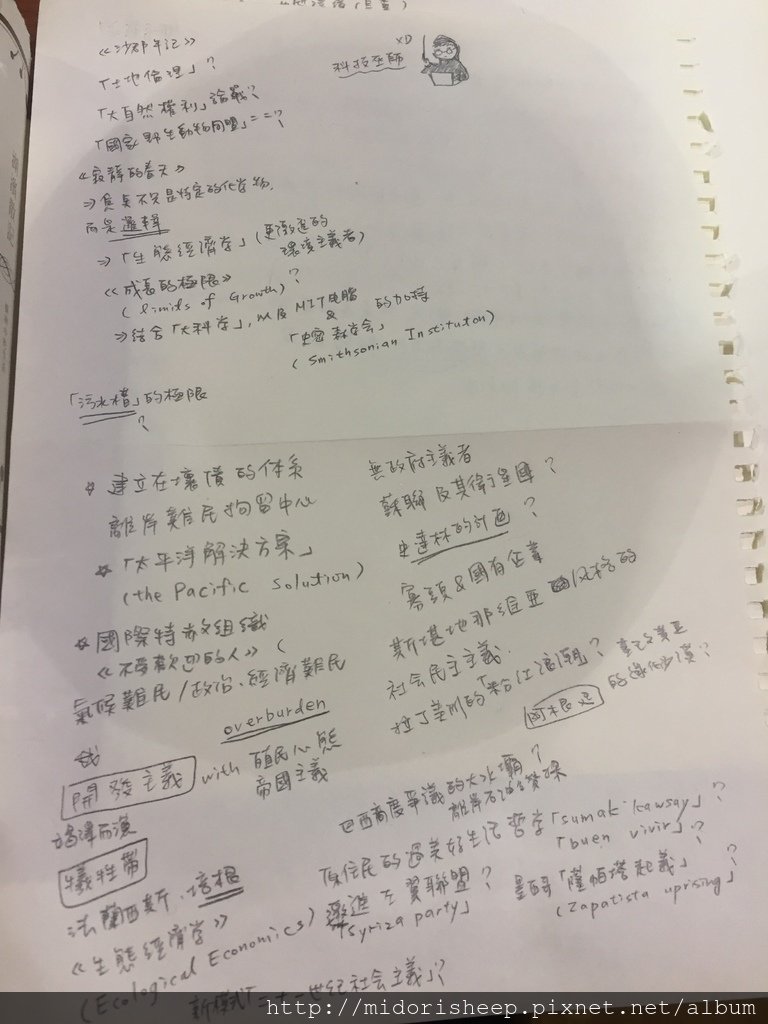 《沙郡年記》
「土地倫理」?
「大自然權利」論戰?
「國家野生動物同盟」==?
XD
科技巫師
《寂靜的春天》
⇒ 負責不只是特定的化學物,
而是邏輯
⇒「生態經濟学」(更激進的
環境主義者)
《成長的極限》?
(limits of Growth)
⇒ 結合「大科学」, 以及 MIT 电腦 的加持
&
「史密森学会」
(Smithsonian Instituton)
「污水槽」的極限
?
☆ 建立在壞債的体系
離岸難民拘留中心
☆「太平洋解決方案」
(the Pacific solution)
☆ 國際特赦組織
《不受歡迎的人》(
氣候難民/政治、經濟難民
overburden
開發主義 with 殖民心態
帝國主義
竭澤而漁
犧牲帶
法蘭西斯.培根
《生態經濟学》
(Ecological Economics)
無政府主義者
蘇聯及其衛星國?
史達林的計画?
寡頭&國有企業
斯堪地那維亞 风格的
社會民主主義.
拉丁美洲的「粉紅浪潮」?
阿根廷
巴西高度爭議的大水壩?
離岸石油
原住民的過美好生活哲学「sumak kawsay」?
「buen vivir」?
激進左翼聯盟?
「Syriza party」
墨西哥「薩帕塔起義」?
(Zapatista uprising)
新模式「二十一世紀社會主義」?
http://midorisheep.pixnet.net/album